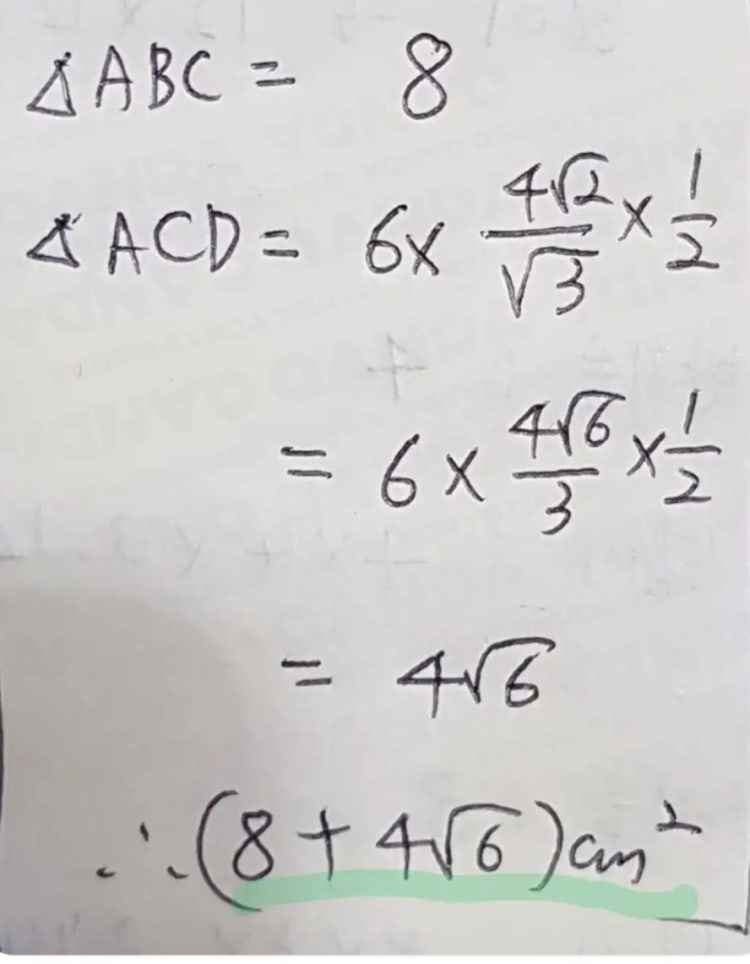 △ABC = 8
△ACD = 6 × 4√2/√3 × 1/2
= 6 × 4√6/3 × 1/2
= 4√6
∴ (8 + 4√6) cm²